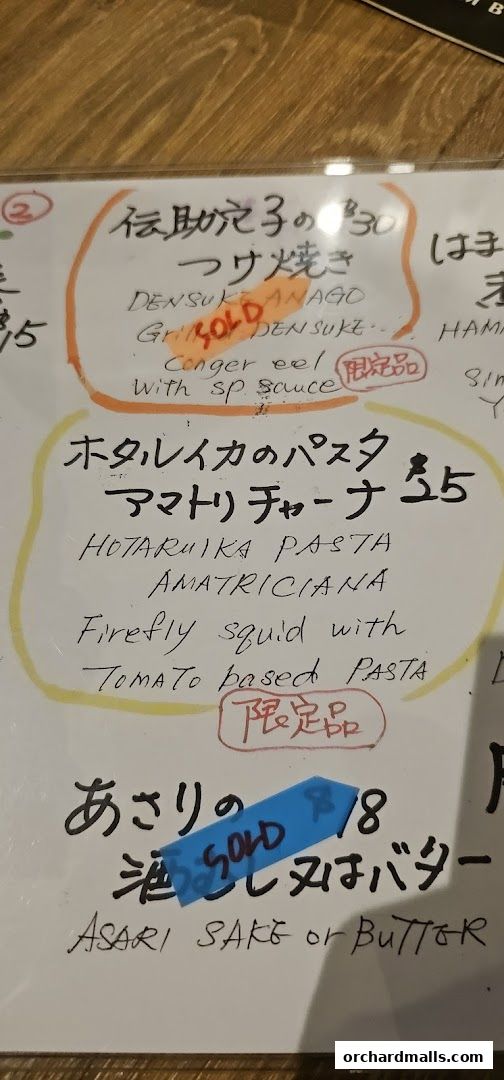 M B
②
伝助穴子の $30
つけ焼き
DENSUKE ANAGO
SOLD
DENSUKE...
conger eel
with sp sauce
限定品
$15
はま
HAMA
Sim
ホタルイカのパスタ
アマトリチャーナ $25
HOTARUIKA PASTA
AMATRICIANA
Firefly squid with
TOMATO based PASTA
限定品
あさりの $18
SOLD
酒蒸し又はバター
ASARI SAKE or BUTTER
orchardmalls.com